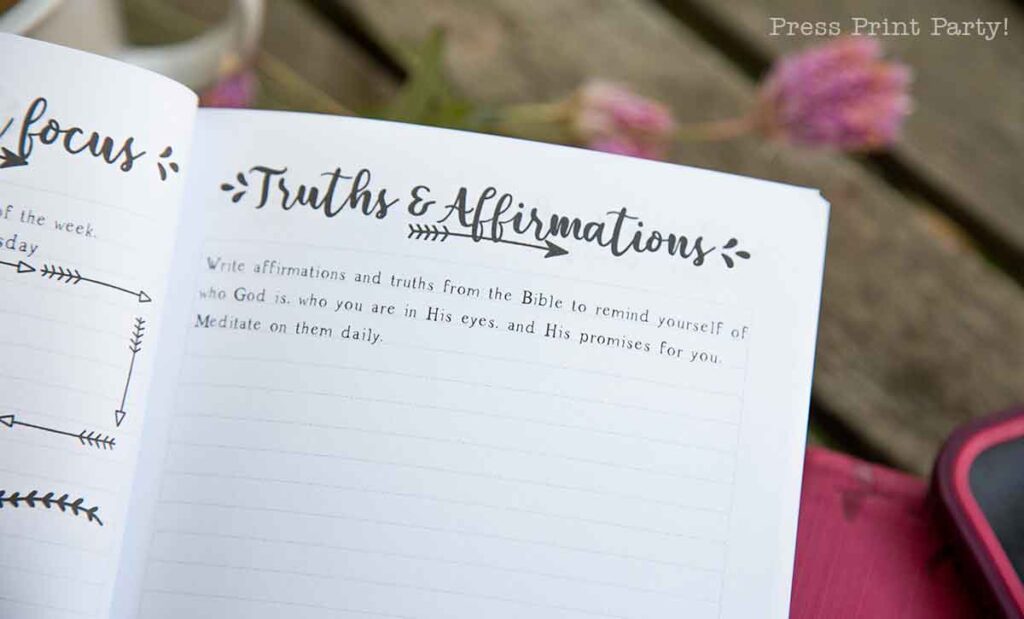 Press Print Party!
focus
of the week.
sday
Truths & Affirmations
Write affirmations and truths from the Bible to remind yourself of
who God is, who you are in His eyes, and His promises for you.
Meditate on them daily.